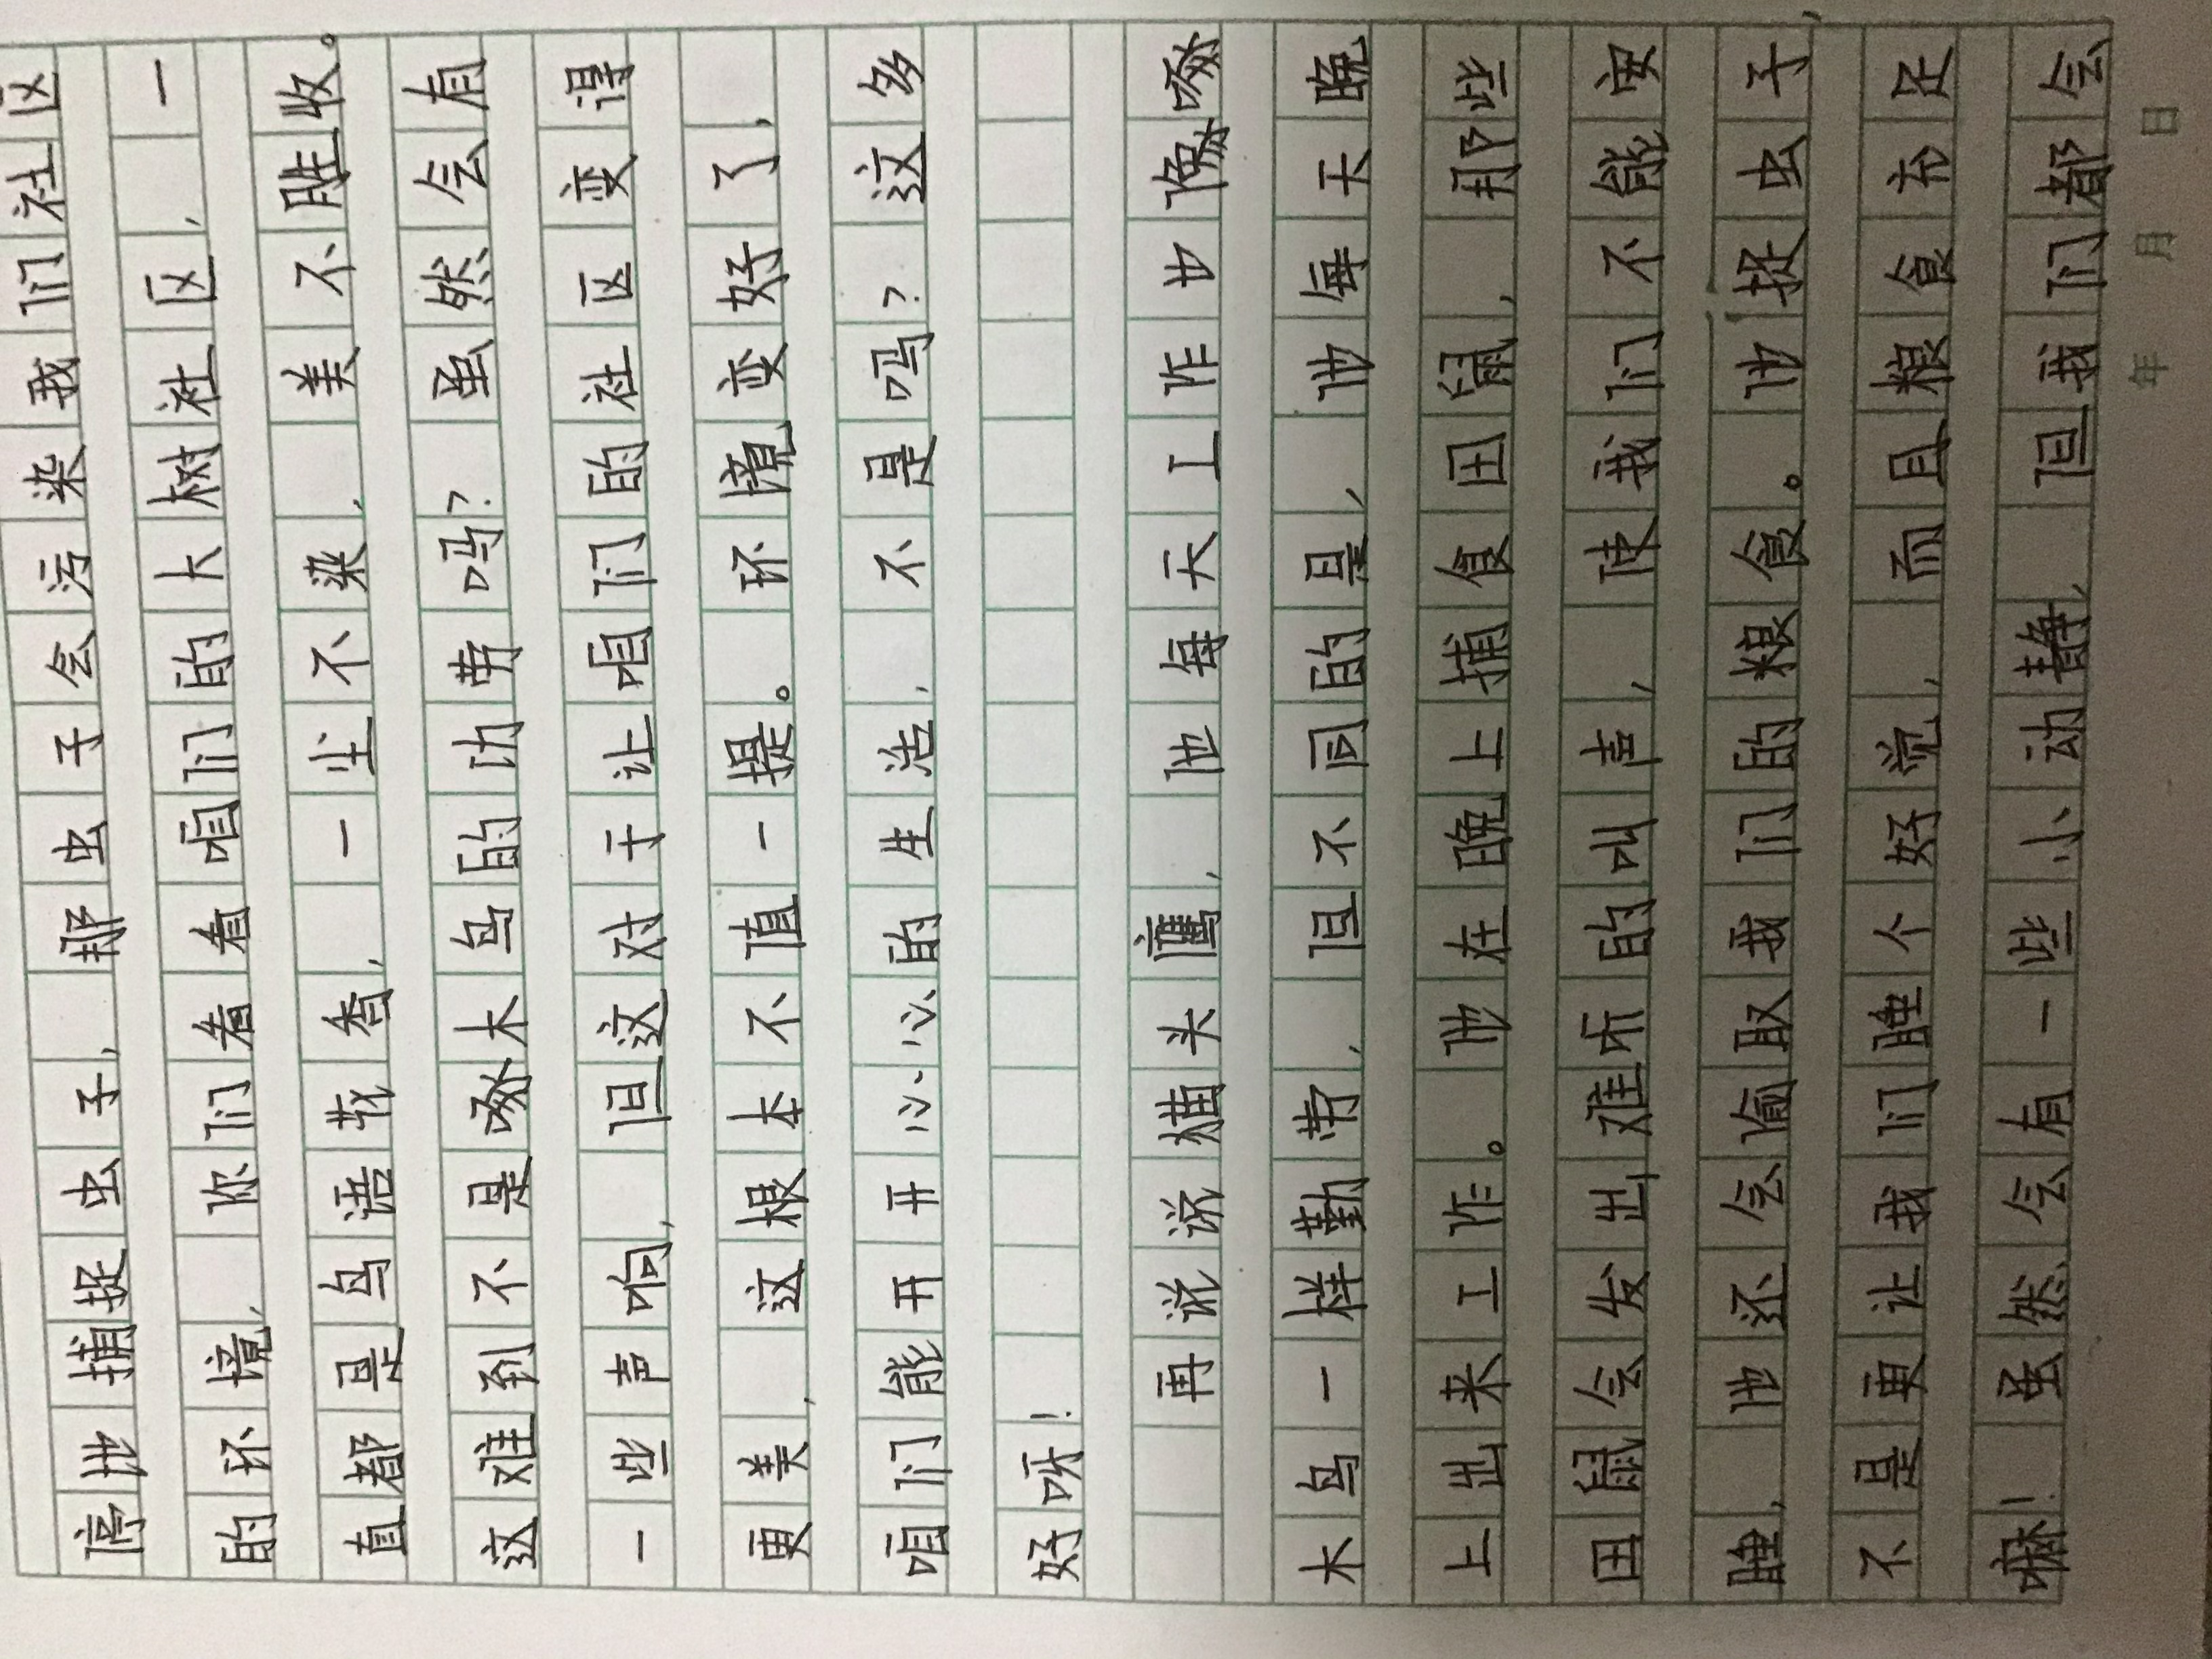 停地捕捉虫子，那虫子会污染我们社区
的环境，你们看看咱们的大树社区，一
直都是鸟语花香，一尘不染，美不胜收。
这难到不是啄木鸟的功劳吗？虽然会有
一些声响，但这对于让咱们的社区变得
更美，这根本不值一提。环境变好了，
咱们能开开心心的生活，不是吗？这多
好呀！
再说说猫头鹰，他每天工作也像啄
木鸟一样勤劳，但不同的是，他每天晚
上出来工作。他在晚上捕食田鼠，那些
田鼠会发出难听的叫声，使我们不能安
睡，他还会偷取我们的粮食。他捉虫子，
不是更让我们睡个好觉，而且粮食充足
嘛！虽然会有一些小动静，但我们都会
年 月 日